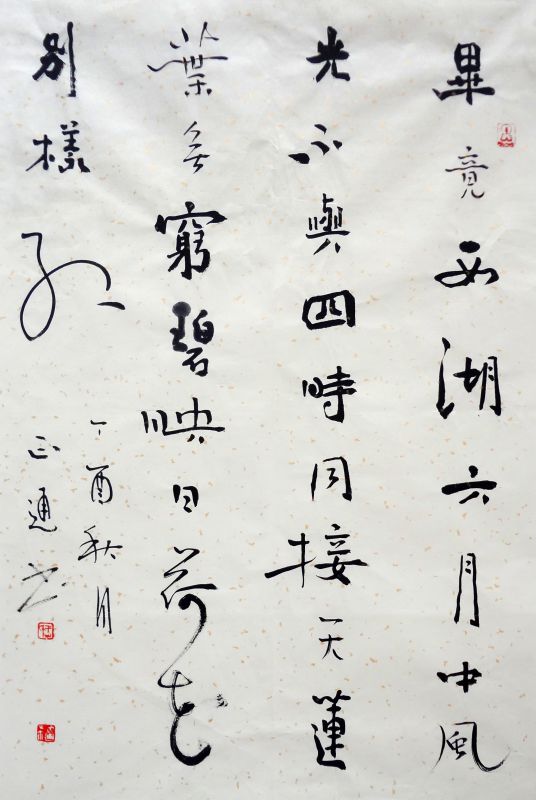 畢竟西湖六月中風
光不與四時同接天蓮
葉無窮碧映日荷花
別樣紅
丁酉秋月
正通书